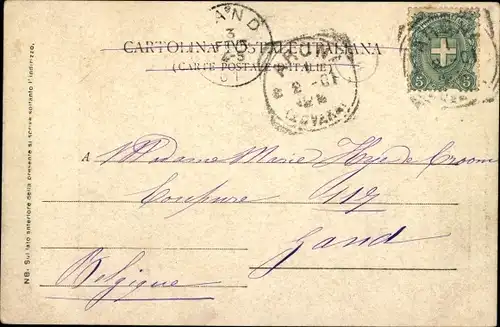 CARTOLINA POSTALE ITALIANA
(CARTE POSTALE D'ITALIE)
GAND
3
ARONA
2 - 01
(NOVARA)
5
5
A Madame Marie Hye de Croom
Coupure 117
Gand
Belgique
NB. Sul lato anteriore della presente si scrive soltanto l'indirizzo.